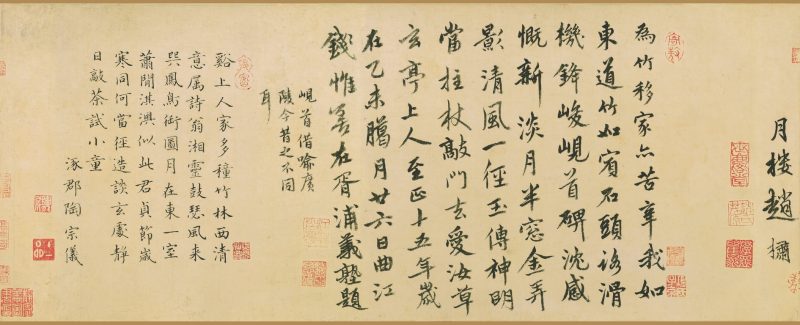 月樓趙
為竹移家亦苦辛我如
東道竹如賓石頭路滑
機鋒峻峴首碑沈感
慨新淡月半窓金弄
影清風一徑玉傳神明
當拄杖敲門去愛汝草
玄亭上人至正十五年歲
在乙未臈月廿六日曲江
錢惟善在胥浦義塾題
峴首借喻廣
陵今昔之不同
耳
谿上人家多種竹林西清
意属詩翁湘靈鼓瑟風来
巽鳳鳥銜圖月在東一室
蕭閒淇澳似此君貞節歲
寒同何當徑造談玄處靜
日敲茶試小童
涿郡陶宗儀